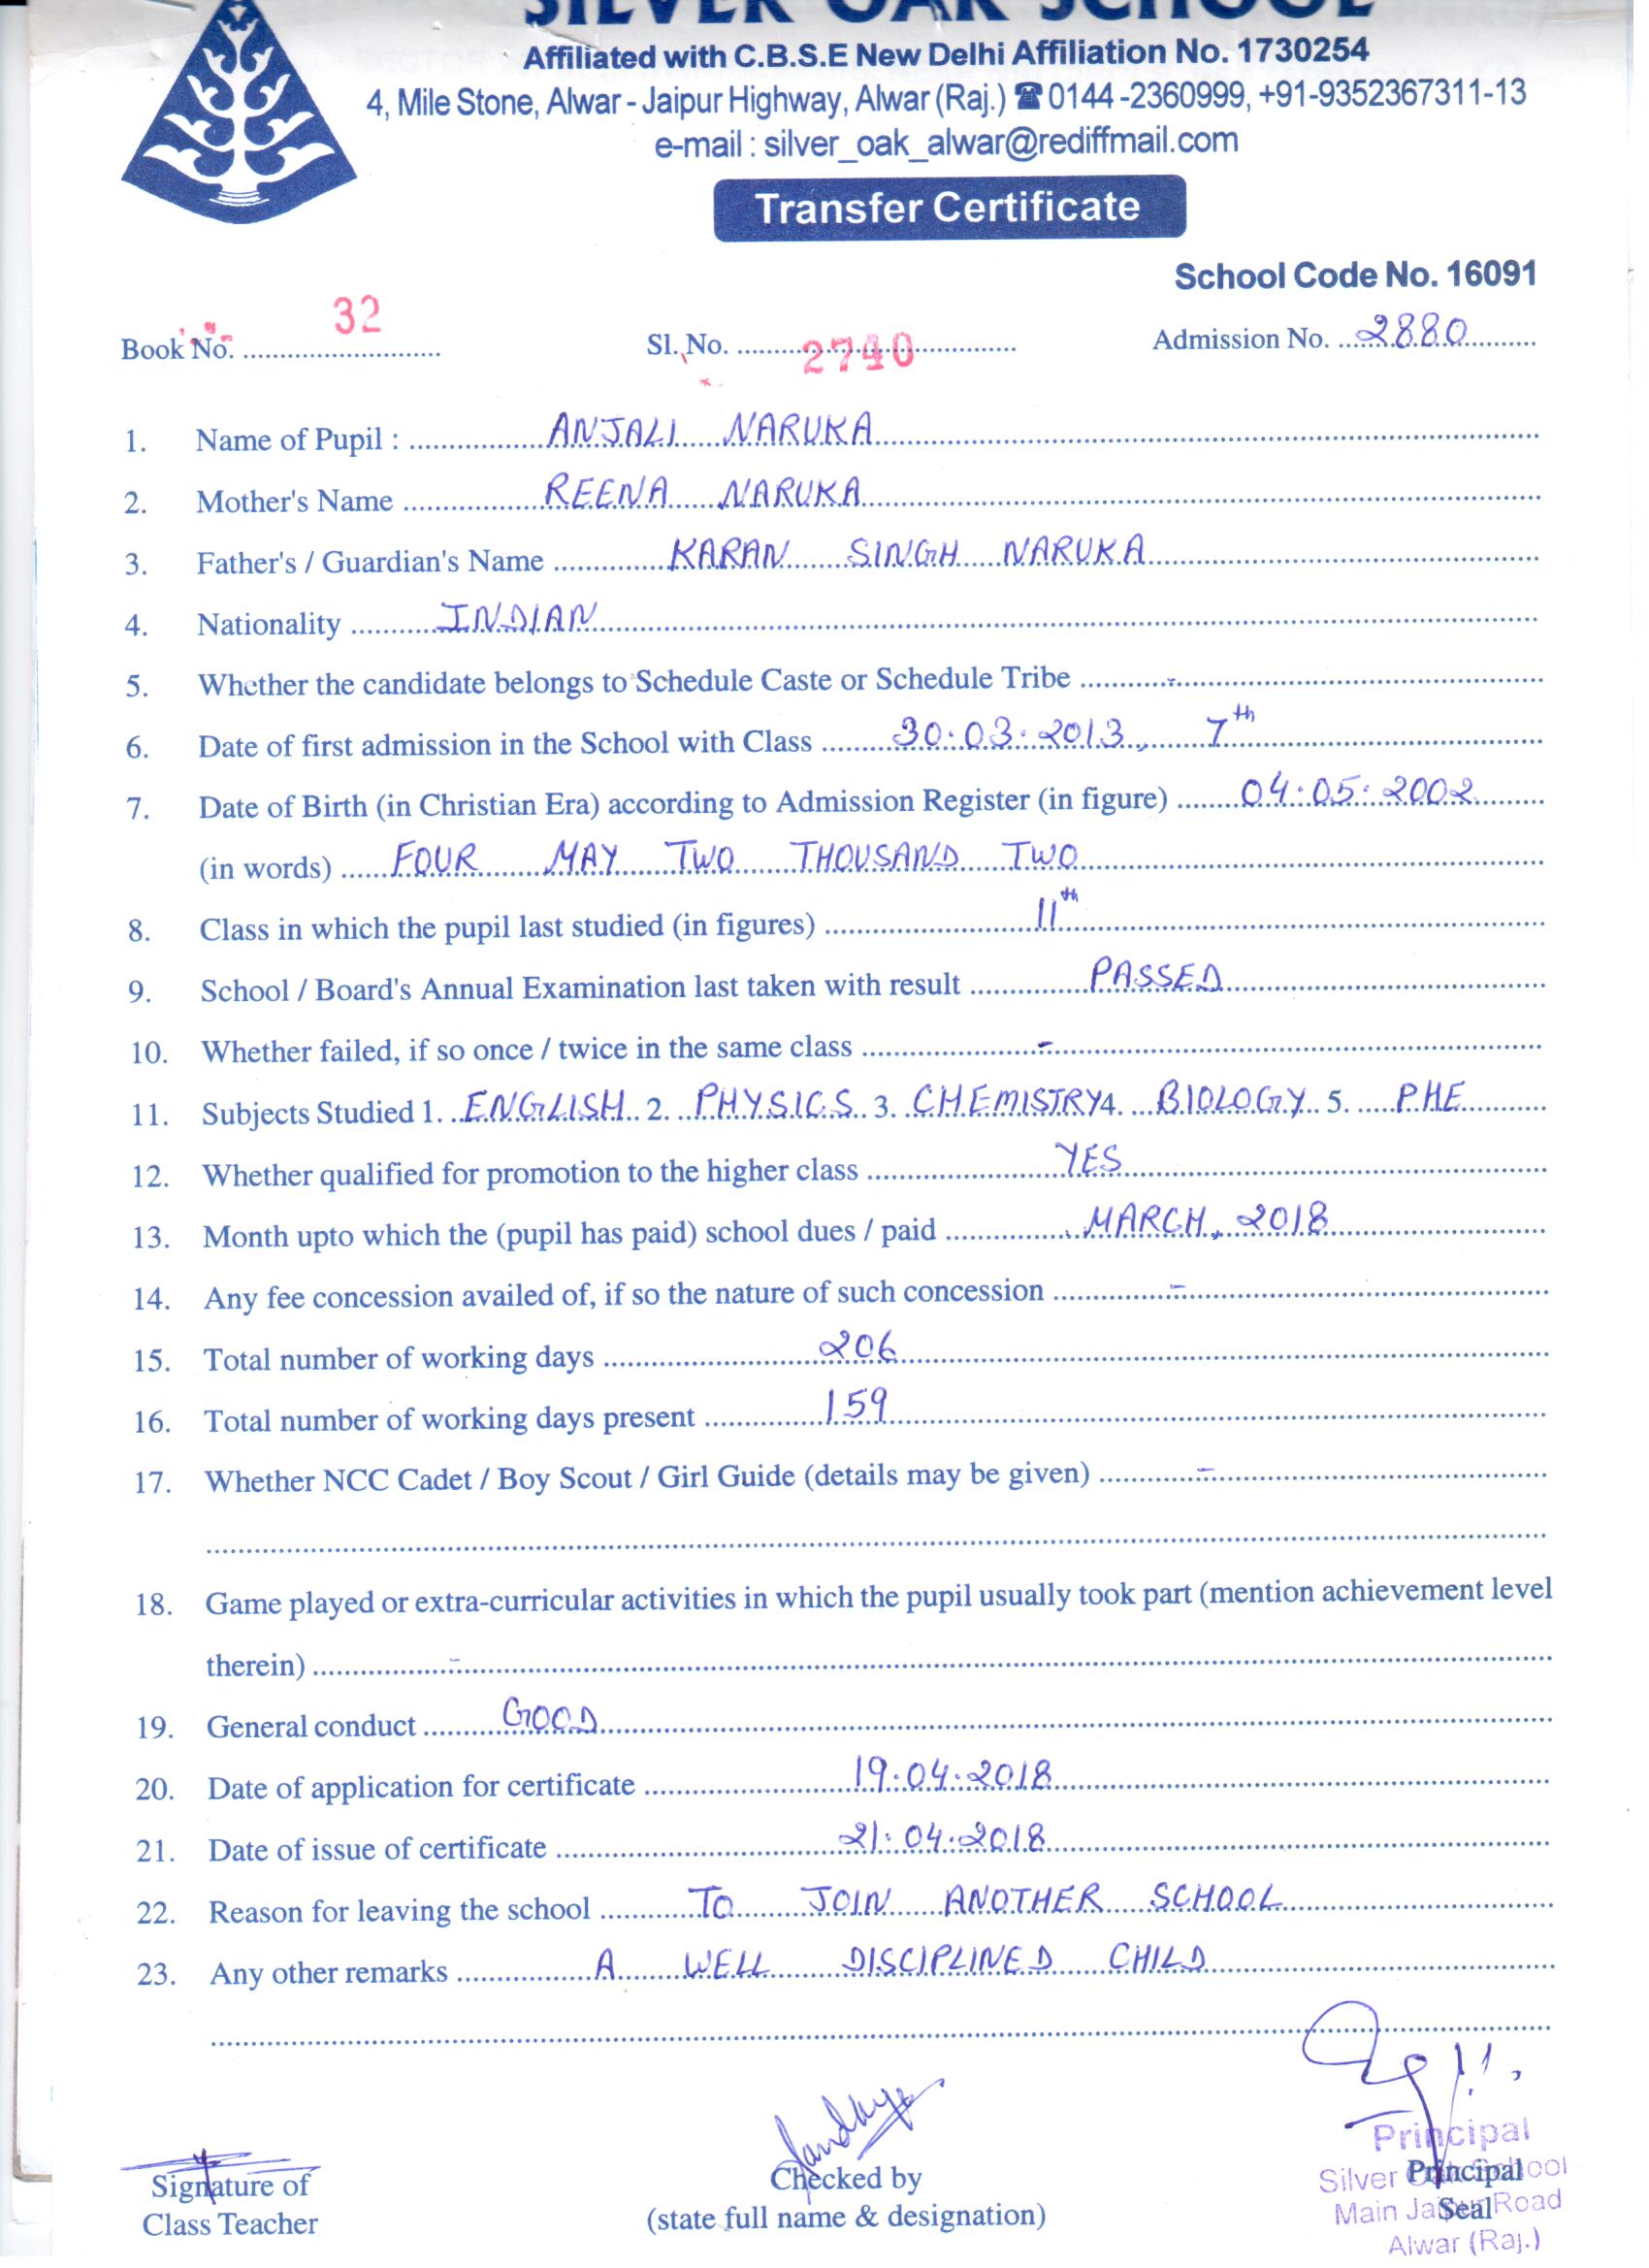 SILVER OAK SCHOOL
Affiliated with C.B.S.E New Delhi Affiliation No. 1730254
4, Mile Stone, Alwar - Jaipur Highway, Alwar (Raj.) ☎ 0144 -2360999, +91-9352367311-13
e-mail : silver_oak_alwar@rediffmail.com
Transfer Certificate
School Code No. 16091
Book No. 32 Sl. No. 2740 Admission No. 2880
1. Name of Pupil : ANJALI NARUKA
2. Mother's Name REENA NARUKA
3. Father's / Guardian's Name KARAN SINGH NARUKA
4. Nationality INDIAN
5. Whether the candidate belongs to Schedule Caste or Schedule Tribe -
6. Date of first admission in the School with Class 30.03.2013, 7th
7. Date of Birth (in Christian Era) according to Admission Register (in figure) 04.05.2002
(in words) FOUR MAY TWO THOUSAND TWO
8. Class in which the pupil last studied (in figures) 11th
9. School / Board's Annual Examination last taken with result PASSED
10. Whether failed, if so once / twice in the same class -
11. Subjects Studied 1. ENGLISH 2. PHYSICS 3. CHEMISTRY 4. BIOLOGY 5. PHE
12. Whether qualified for promotion to the higher class YES
13. Month upto which the (pupil has paid) school dues / paid MARCH, 2018
14. Any fee concession availed of, if so the nature of such concession -
15. Total number of working days 206
16. Total number of working days present 159
17. Whether NCC Cadet / Boy Scout / Girl Guide (details may be given) -
18. Game played or extra-curricular activities in which the pupil usually took part (mention achievement level
therein) -
19. General conduct GOOD
20. Date of application for certificate 19.04.2018
21. Date of issue of certificate 21.04.2018
22. Reason for leaving the school TO JOIN ANOTHER SCHOOL
23. Any other remarks A WELL DISCIPLINED CHILD
Signature of
Class Teacher
Checked by
(state full name & designation)
Principal
Seal
Principal
Silver Oak School
Main Jaipur Road
Alwar (Raj.)